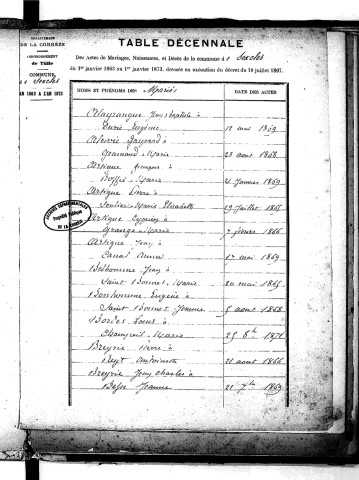 DÉPARTEMENT
DE LA CORRÈZE
ARRONDISSEMENT
de Tulle
COMMUNE
AN 1863 A L'AN 1873
TABLE DÉCENNALE
Des Actes de Mariages, Naissances, et Décès de la commune d
du 1er janvier 1863 au 1er janvier 1873, dressée en exécution du décret du 20 juillet 1807.
NOMS ET PRÉNOMS DES Mariés
DATE DES ACTES
Jean Baptiste à
Eugénie 1869
Gramond Marie 23 aout 1868
Artigue François à
Marie 21 Janvier 1869
Artigue Pierre à
Marie Elisabeth 19 Juillet 1865
Artigue à
Grange Marie 7 février 1866
Artigue Jean à
Canal Anna 17 mai 1869
Bonhomme Jean à
Saint Bonnet, Marie 20 mai 1865
Bonhomme Eugène à
Saint Bonnet Jeanne 5 aout 1868
Bordes Louis à
Marie 25 8bre 1871
Breyrie Pierre à
Antoinette 21 aout 1866
Breyrie Jean Charles à
Besse Jeanne 21 7bre 1869
ARCHIVES DÉPARTEMENTALES
Propriété Publique
DE LA CORRÈZE